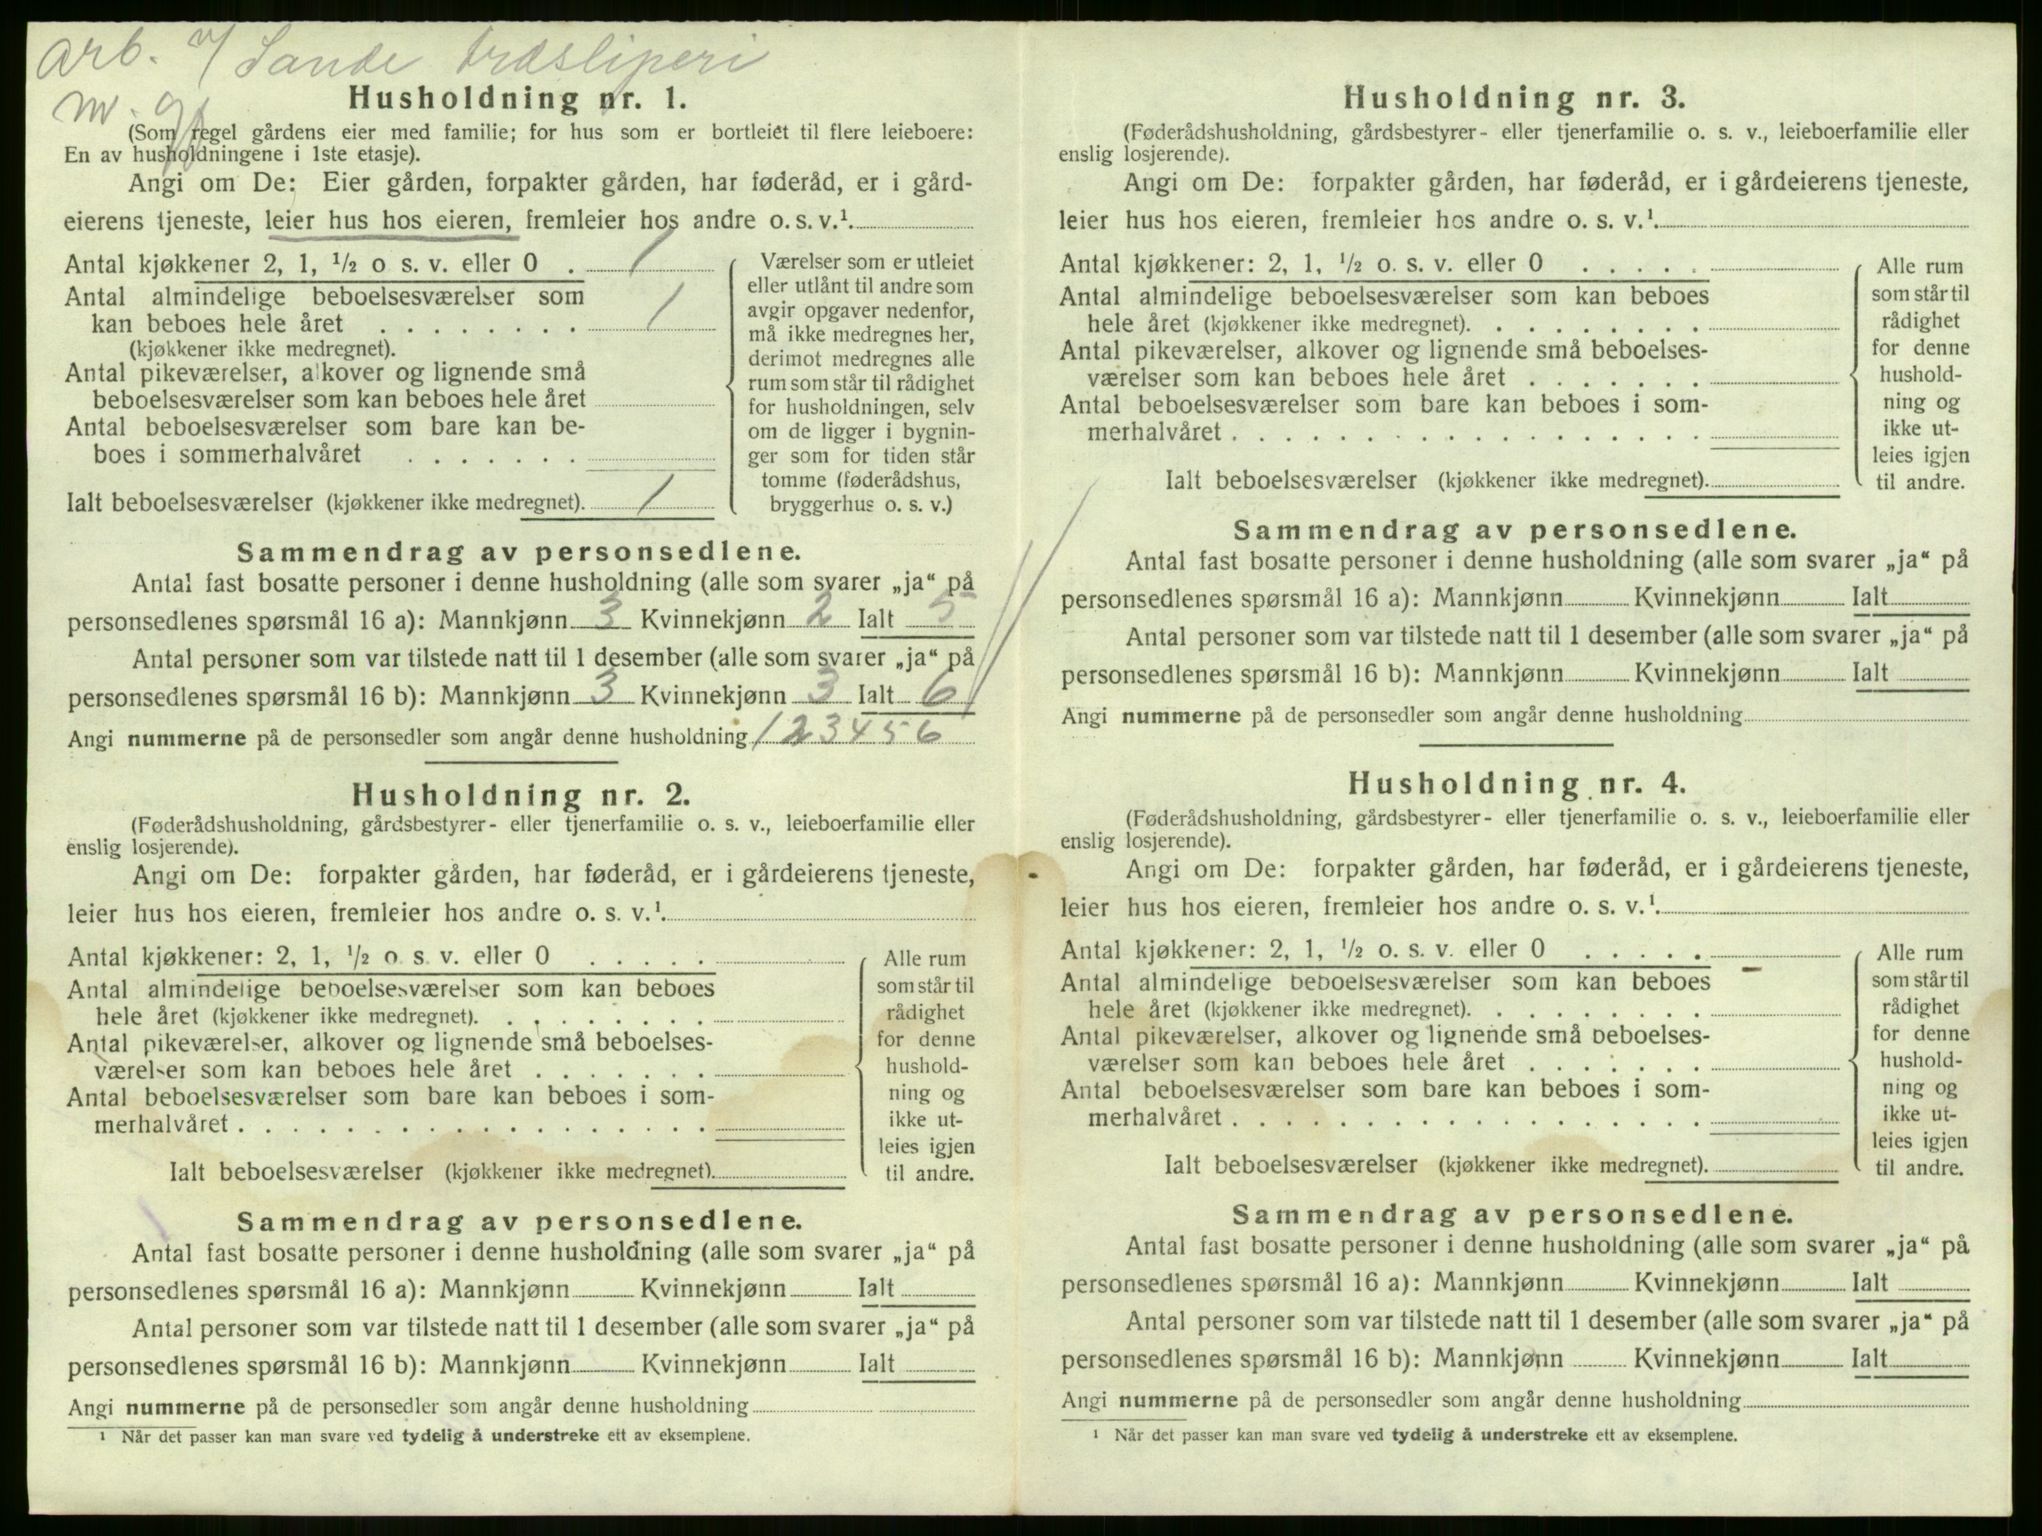 arb. v/ Sande træsliperi
m. gf
Husholdning nr. 1.
(Som regel gårdens eier med familie; for hus som er bortleiet til flere leieboere:
En av husholdningene i 1ste etasje).
Angi om De: Eier gården, forpakter gården, har føderåd, er i gård-
eierens tjeneste, leier hus hos eieren, fremleier hos andre o. s. v.¹
Antal kjøkkener 2, 1, ½ o s. v. eller 0 . 1
Antal almindelige beboelsesværelser som
kan beboes hele året . . . . . . . . 1
(kjøkkener ikke medregnet).
Antal pikeværelser, alkover og lignende små
beboelsesværelser som kan beboes hele året
Antal beboelsesværelser som bare kan be-
boes i sommerhalvåret . . . . . . .
Ialt beboelsesværelser (kjøkkener ikke medregnet). 1
Værelser som er utleiet
eller utlånt til andre som
avgir opgaver nedenfor,
må ikke medregnes her,
derimot medregnes alle
rum som står til rådighet
for husholdningen, selv
om de ligger i bygnin-
ger som for tiden står
tomme (føderådshus,
bryggerhus o. s. v.)
Sammendrag av personsedlene.
Antal fast bosatte personer i denne husholdning (alle som svarer „ja“ på
personsedlenes spørsmål 16 a): Mannkjønn 3 Kvinnekjønn 2 Ialt 5
Antal personer som var tilstede natt til 1 desember (alle som svarer „ja“ på
personsedlenes spørsmål 16 b): Mannkjønn 3 Kvinnekjønn 3 Ialt 6
Angi nummerne på de personsedler som angår denne husholdning 1 2 3 4 5 6
Husholdning nr. 2.
(Føderådshusholdning, gårdsbestyrer- eller tjenerfamilie o. s. v., leieboerfamilie eller
enslig losjerende).
Angi om De: forpakter gården, har føderåd, er i gårdeierens tjeneste,
leier hus hos eieren, fremleier hos andre o. s. v.¹
Antal kjøkkener: 2, 1, ½ o s. v. eller 0 . . . . .
Antal almindelige beboelsesværelser som kan beboes
hele året (kjøkkener ikke medregnet). . . . . . . . .
Antal pikeværelser, alkover og lignende små beboelses-
værelser som kan beboes hele året . . . . . . .
Antal beboelsesværelser som bare kan beboes i som-
merhalvåret . . . . . . . . . . . . . . . . . .
Ialt beboelsesværelser (kjøkkener ikke medregnet).
Alle rum
som står til
rådighet
for denne
hushold-
ning og
ikke ut-
leies igjen
til andre.
Sammendrag av personsedlene.
Antal fast bosatte personer i denne husholdning (alle som svarer „ja“ på
personsedlenes spørsmål 16 a): Mannkjønn Kvinnekjønn Ialt
Antal personer som var tilstede natt til 1 desember (alle som svarer „ja“ på
personsedlenes spørsmål 16 b): Mannkjønn Kvinnekjønn Ialt
Angi nummerne på de personsedler som angår denne husholdning
¹ Når det passer kan man svare ved tydelig å understreke ett av eksemplene.
Husholdning nr. 3.
(Føderådshusholdning, gårdsbestyrer- eller tjenerfamilie o. s. v., leieboerfamilie eller
enslig losjerende).
Angi om De: forpakter gården, har føderåd, er i gårdeierens tjeneste,
leier hus hos eieren, fremleier hos andre o. s. v.¹
Antal kjøkkener: 2, 1, ½ o. s. v. eller 0 . . . . .
Antal almindelige beboelsesværelser som kan beboes
hele året (kjøkkener ikke medregnet). . . . . . . . .
Antal pikeværelser, alkover og lignende små beboelses-
værelser som kan beboes hele året . . . . . . .
Antal beboelsesværelser som bare kan beboes i som-
merhalvåret . . . . . . . . . . . . . . . . . .
Ialt beboelsesværelser (kjøkkener ikke medregnet).
Alle rum
som står til
rådighet
for denne
hushold-
ning og
ikke ut-
leies igjen
til andre.
Sammendrag av personsedlene.
Antal fast bosatte personer i denne husholdning (alle som svarer „ja“ på
personsedlenes spørsmål 16 a): Mannkjønn Kvinnekjønn Ialt
Antal personer som var tilstede natt til 1 desember (alle som svarer „ja“ på
personsedlenes spørsmål 16 b): Mannkjønn Kvinnekjønn Ialt
Angi nummerne på de personsedler som angår denne husholdning
Husholdning nr. 4.
(Føderådshusholdning, gårdsbestyrer- eller tjenerfamilie o. s. v., leieboerfamilie eller
enslig losjerende).
Angi om De: forpakter gården, har føderåd, er i gårdeierens tjeneste,
leier hus hos eieren, fremleier hos andre o. s. v.¹
Antal kjøkkener: 2, 1, ½ o. s. v. eller 0 . . . . .
Antal almindelige beboelsesværelser som kan beboes
hele året (kjøkkener ikke medregnet). . . . . . . . .
Antal pikeværelser, alkover og lignende små beboelses-
værelser som kan beboes hele året . . . . . . .
Antal beboelsesværelser som bare kan beboes i som-
merhalvåret . . . . . . . . . . . . . . . . . .
Ialt beboelsesværelser (kjøkkener ikke medregnet).
Alle rum
som står til
rådighet
for denne
hushold-
ning og
ikke ut-
leies igjen
til andre.
Sammendrag av personsedlene.
Antal fast bosatte personer i denne husholdning (alle som svarer „ja“ på
personsedlenes spørsmål 16 a): Mannkjønn Kvinnekjønn Ialt
Antal personer som var tilstede natt til 1 desember (alle som svarer „ja“ på
personsedlenes spørsmål 16 b): Mannkjønn Kvinnekjønn Ialt
Angi nummerne på de personsedler som angår denne husholdning
¹ Når det passer kan man svare ved tydelig å understreke ett av eksemplene.